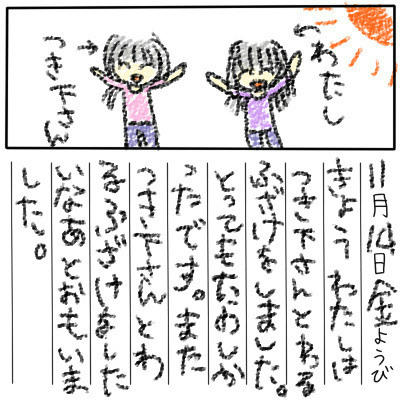 わたし
つき下さん
11月14日金ようび
きょうわたしは
つき下さんとわる
ふざけをしました。
とってもたのしか
ったです。また
つき下さんとわ
るふざけをした
いなあとおもいま
した。